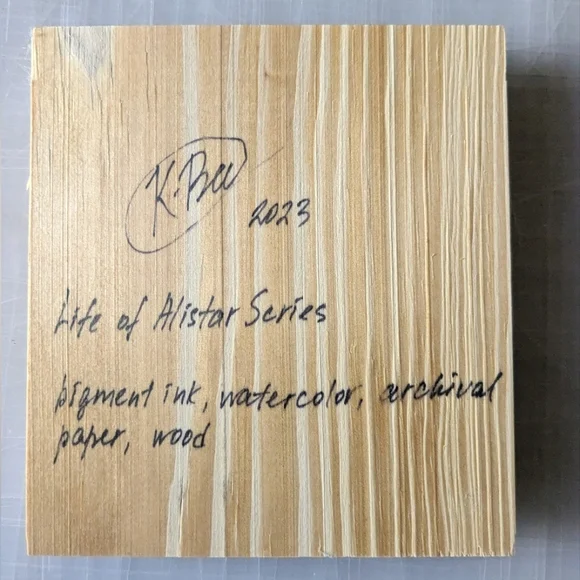 K. Bee
2023
Life of Alistar Series
pigment ink, watercolor, archival
paper, wood